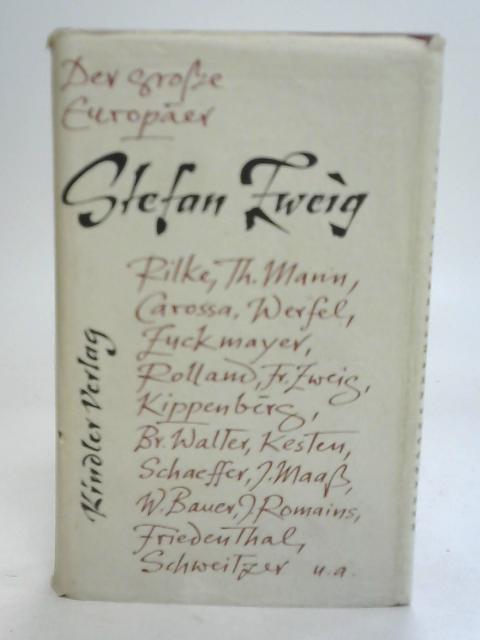 Der große
Europäer
Stefan Zweig
Rilke, Th. Mann,
Carossa, Werfel,
Zuckmayer,
Rolland, Fr. Zweig,
Kippenberg,
Br. Walter, Kesten,
Schaeffer, J. Maaß,
W. Bauer, J. Romains,
Friedenthal,
Schweitzer u.a.
Kindler Verlag